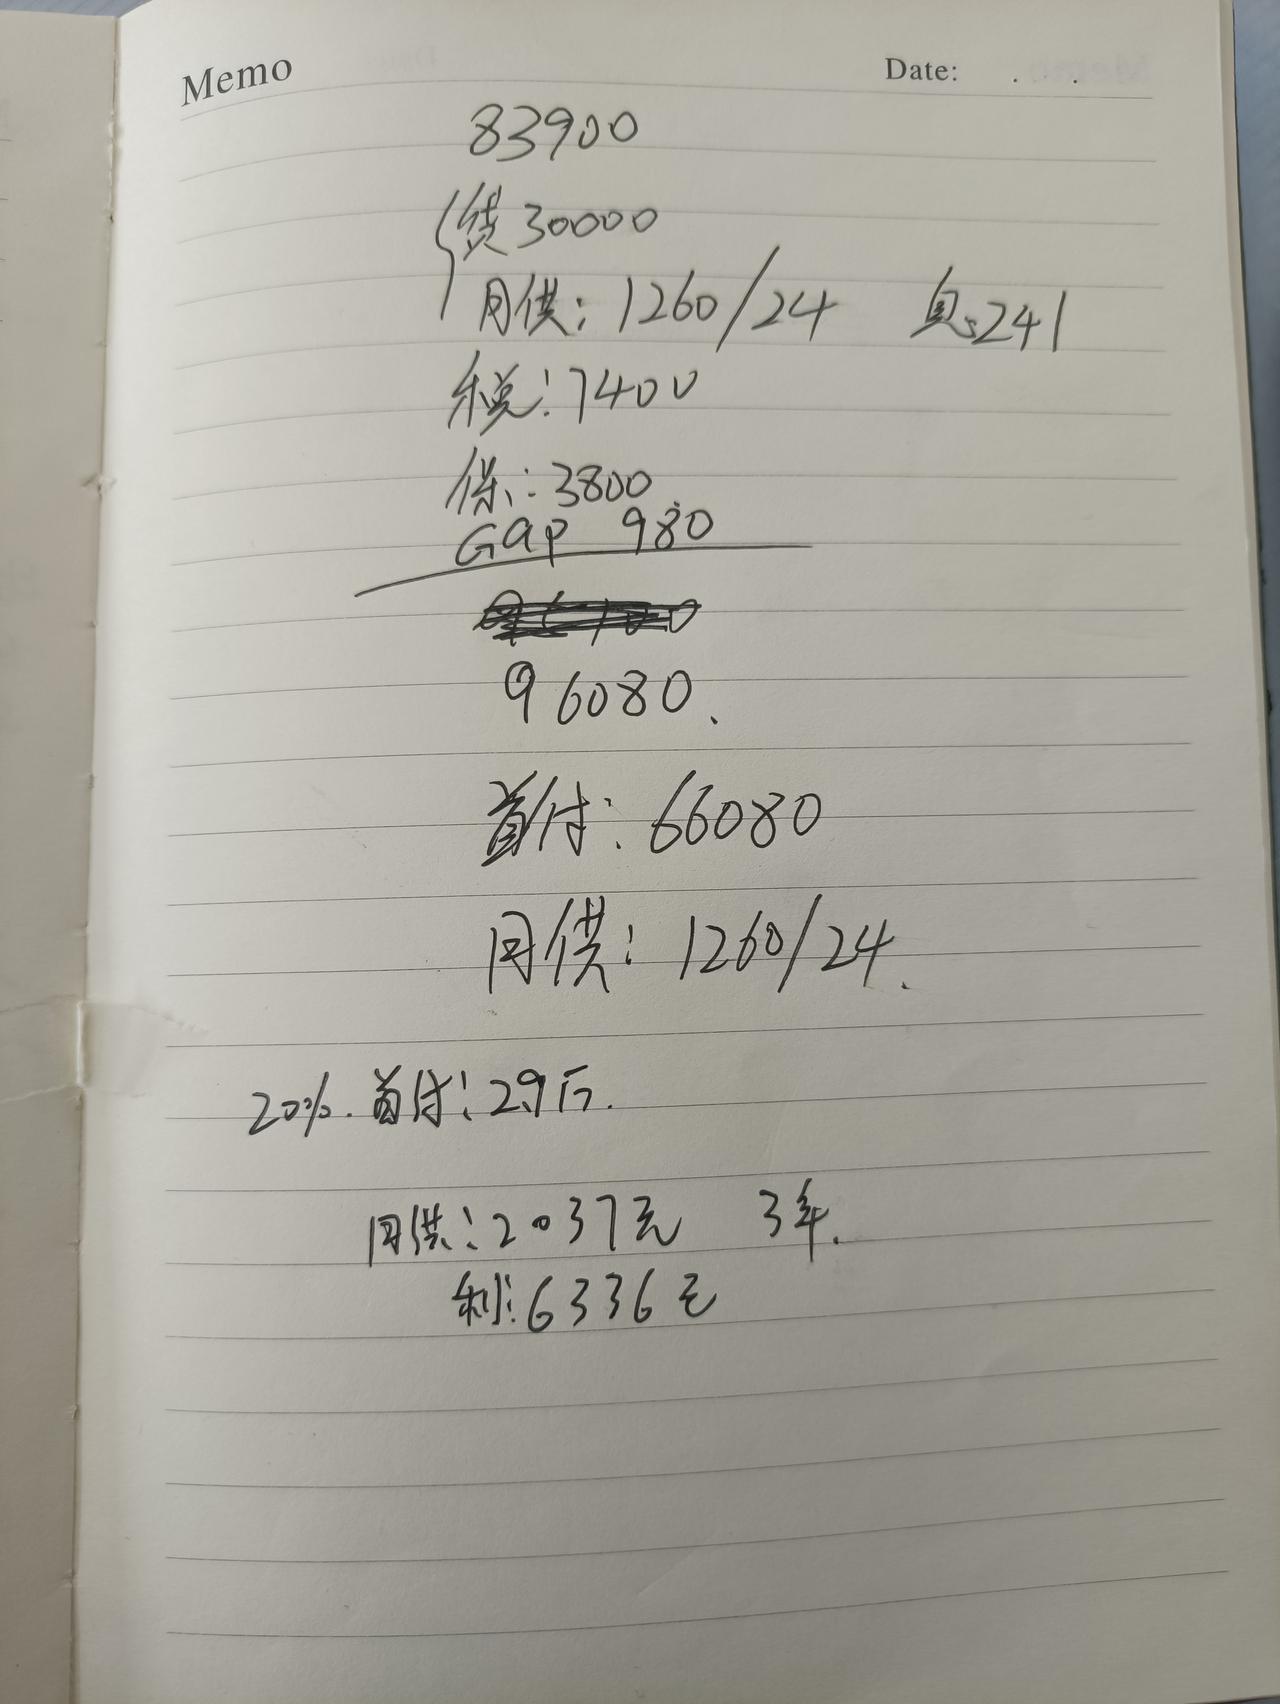 Memo Date: . .
83900
贷30000
月供: 1260/24 息:241
税:7400
保:3800
GAP 980
96080.
首付: 66080
月供: 1260/24.
20%. 首付: 2.9万.
月供: 2037元 3年.
利: 6336元